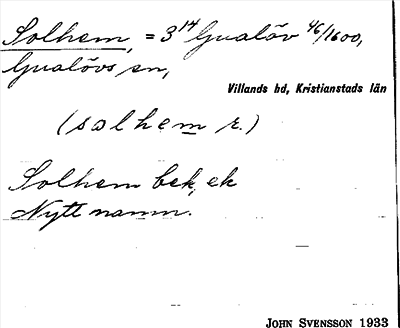 Solhem, = 3¹⁴ Gualöv 46/1600,
Gualövs sn,
Villands hd, Kristianstads län
(solhem r.)
Solhem bek, ek
Nytt namn.
JOHN SVENSSON 1933